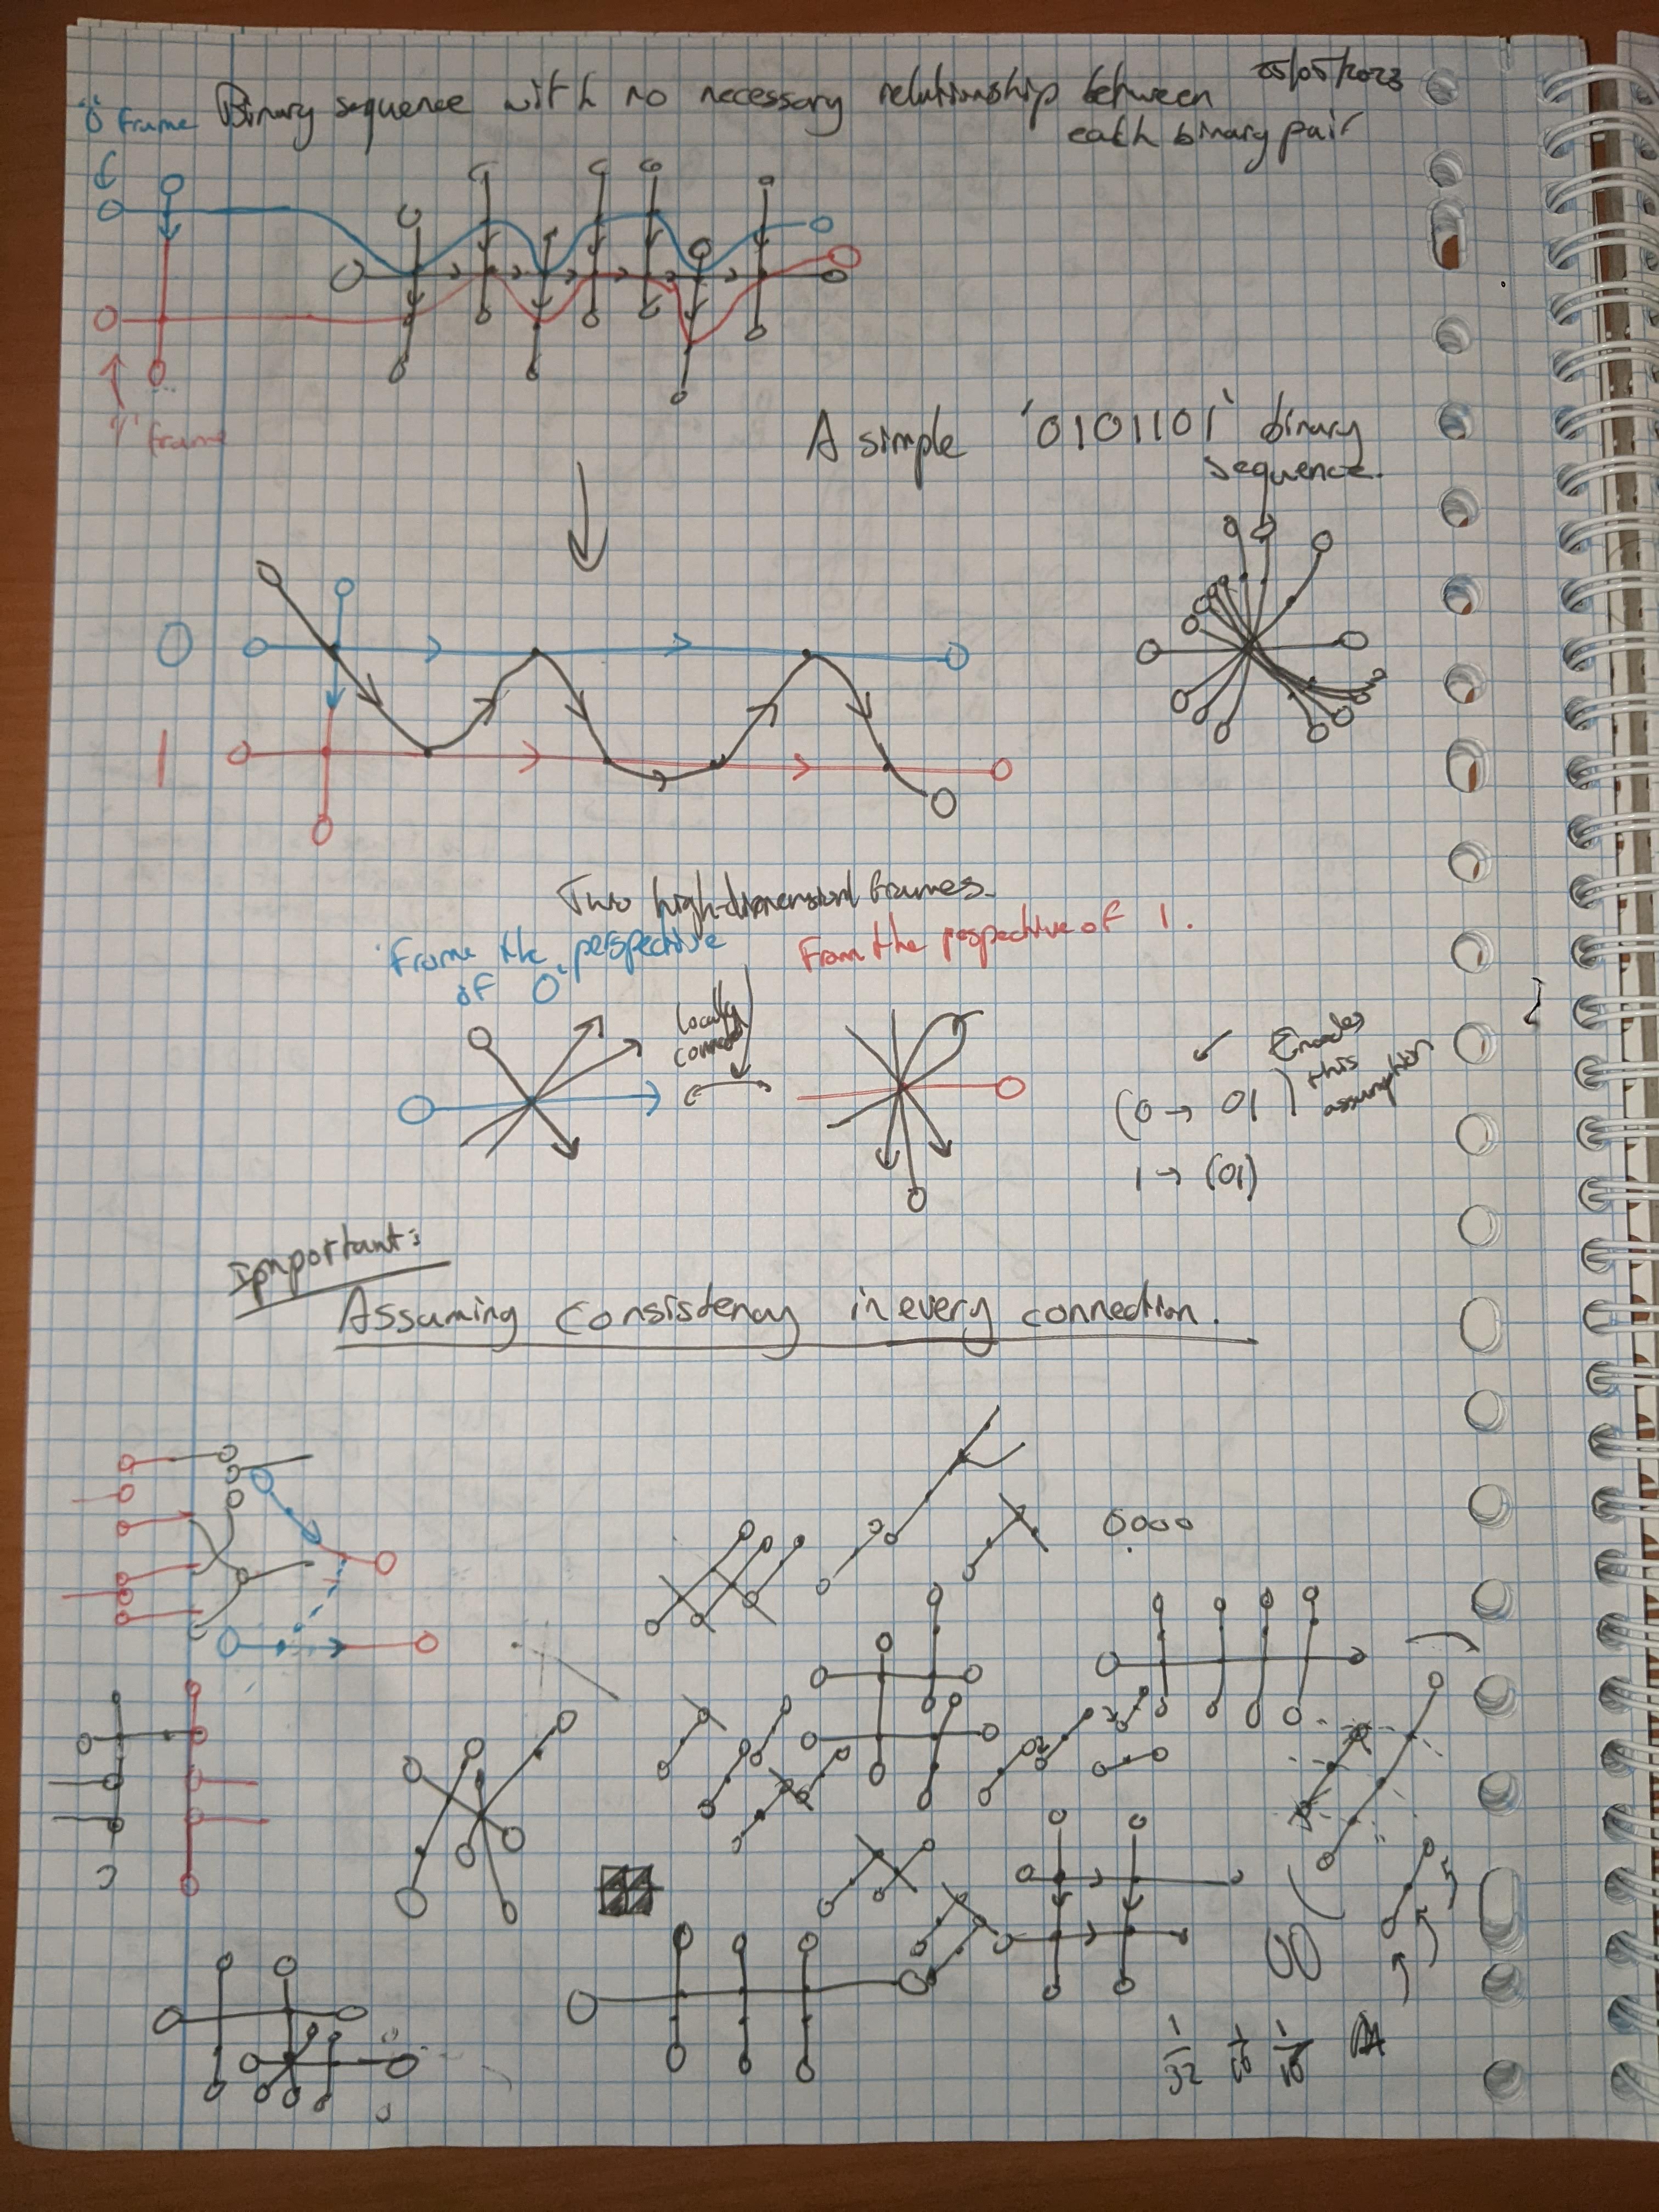 25/05/2023
'0' frame
Binary sequence with no necessary relationship between
each binary pair
'1' frame
A simple '0101101' binary
sequence.
0
1
Two high-dimensional frames.
'Frome the perspective
of 0'
From the pespective of 1.
Locally
(0 → 01)
this
assumption
1 → (01)
Important:
Assuming Consistency in every connection.
0000
1/32